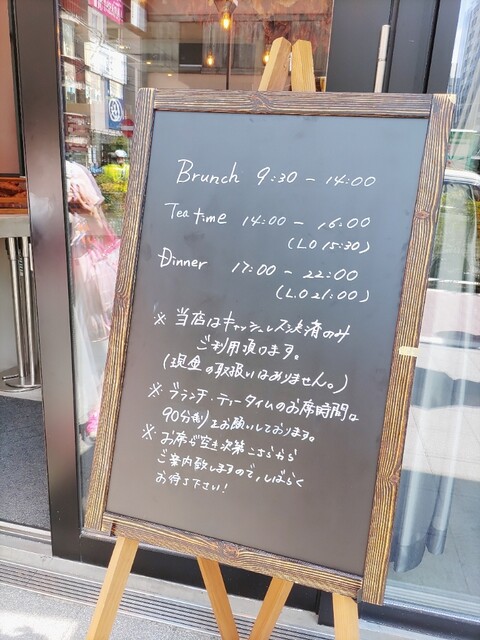 Brunch 9:30 - 14:00
Tea time 14:00 - 16:00
(L.O 15:30)
Dinner 17:00 - 22:00
(L.O 21:00)
※ 当店はキャッシュレス決済のみ
ご利用頂けます。
(現金の取扱いはありません。)
※ ブランチ・ティータイムのお席時間は
90分制とお願いしております。
※ お席が空き次第こちらから
ご案内致しますので、しばらく
お待ち下さい!